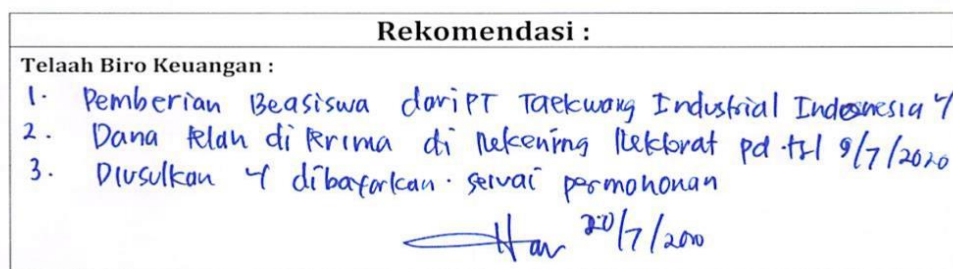 Rekomendasi :
Telaah Biro Keuangan :
1. Pemberian Beasiswa dari PT Taekwang Industrial Indonesia
2. Dana telah di terima di Rekening Rektorat pd tgl 9/7/2020
3. Diusulkan dibayarkan sesuai permohonan
20/7/2020